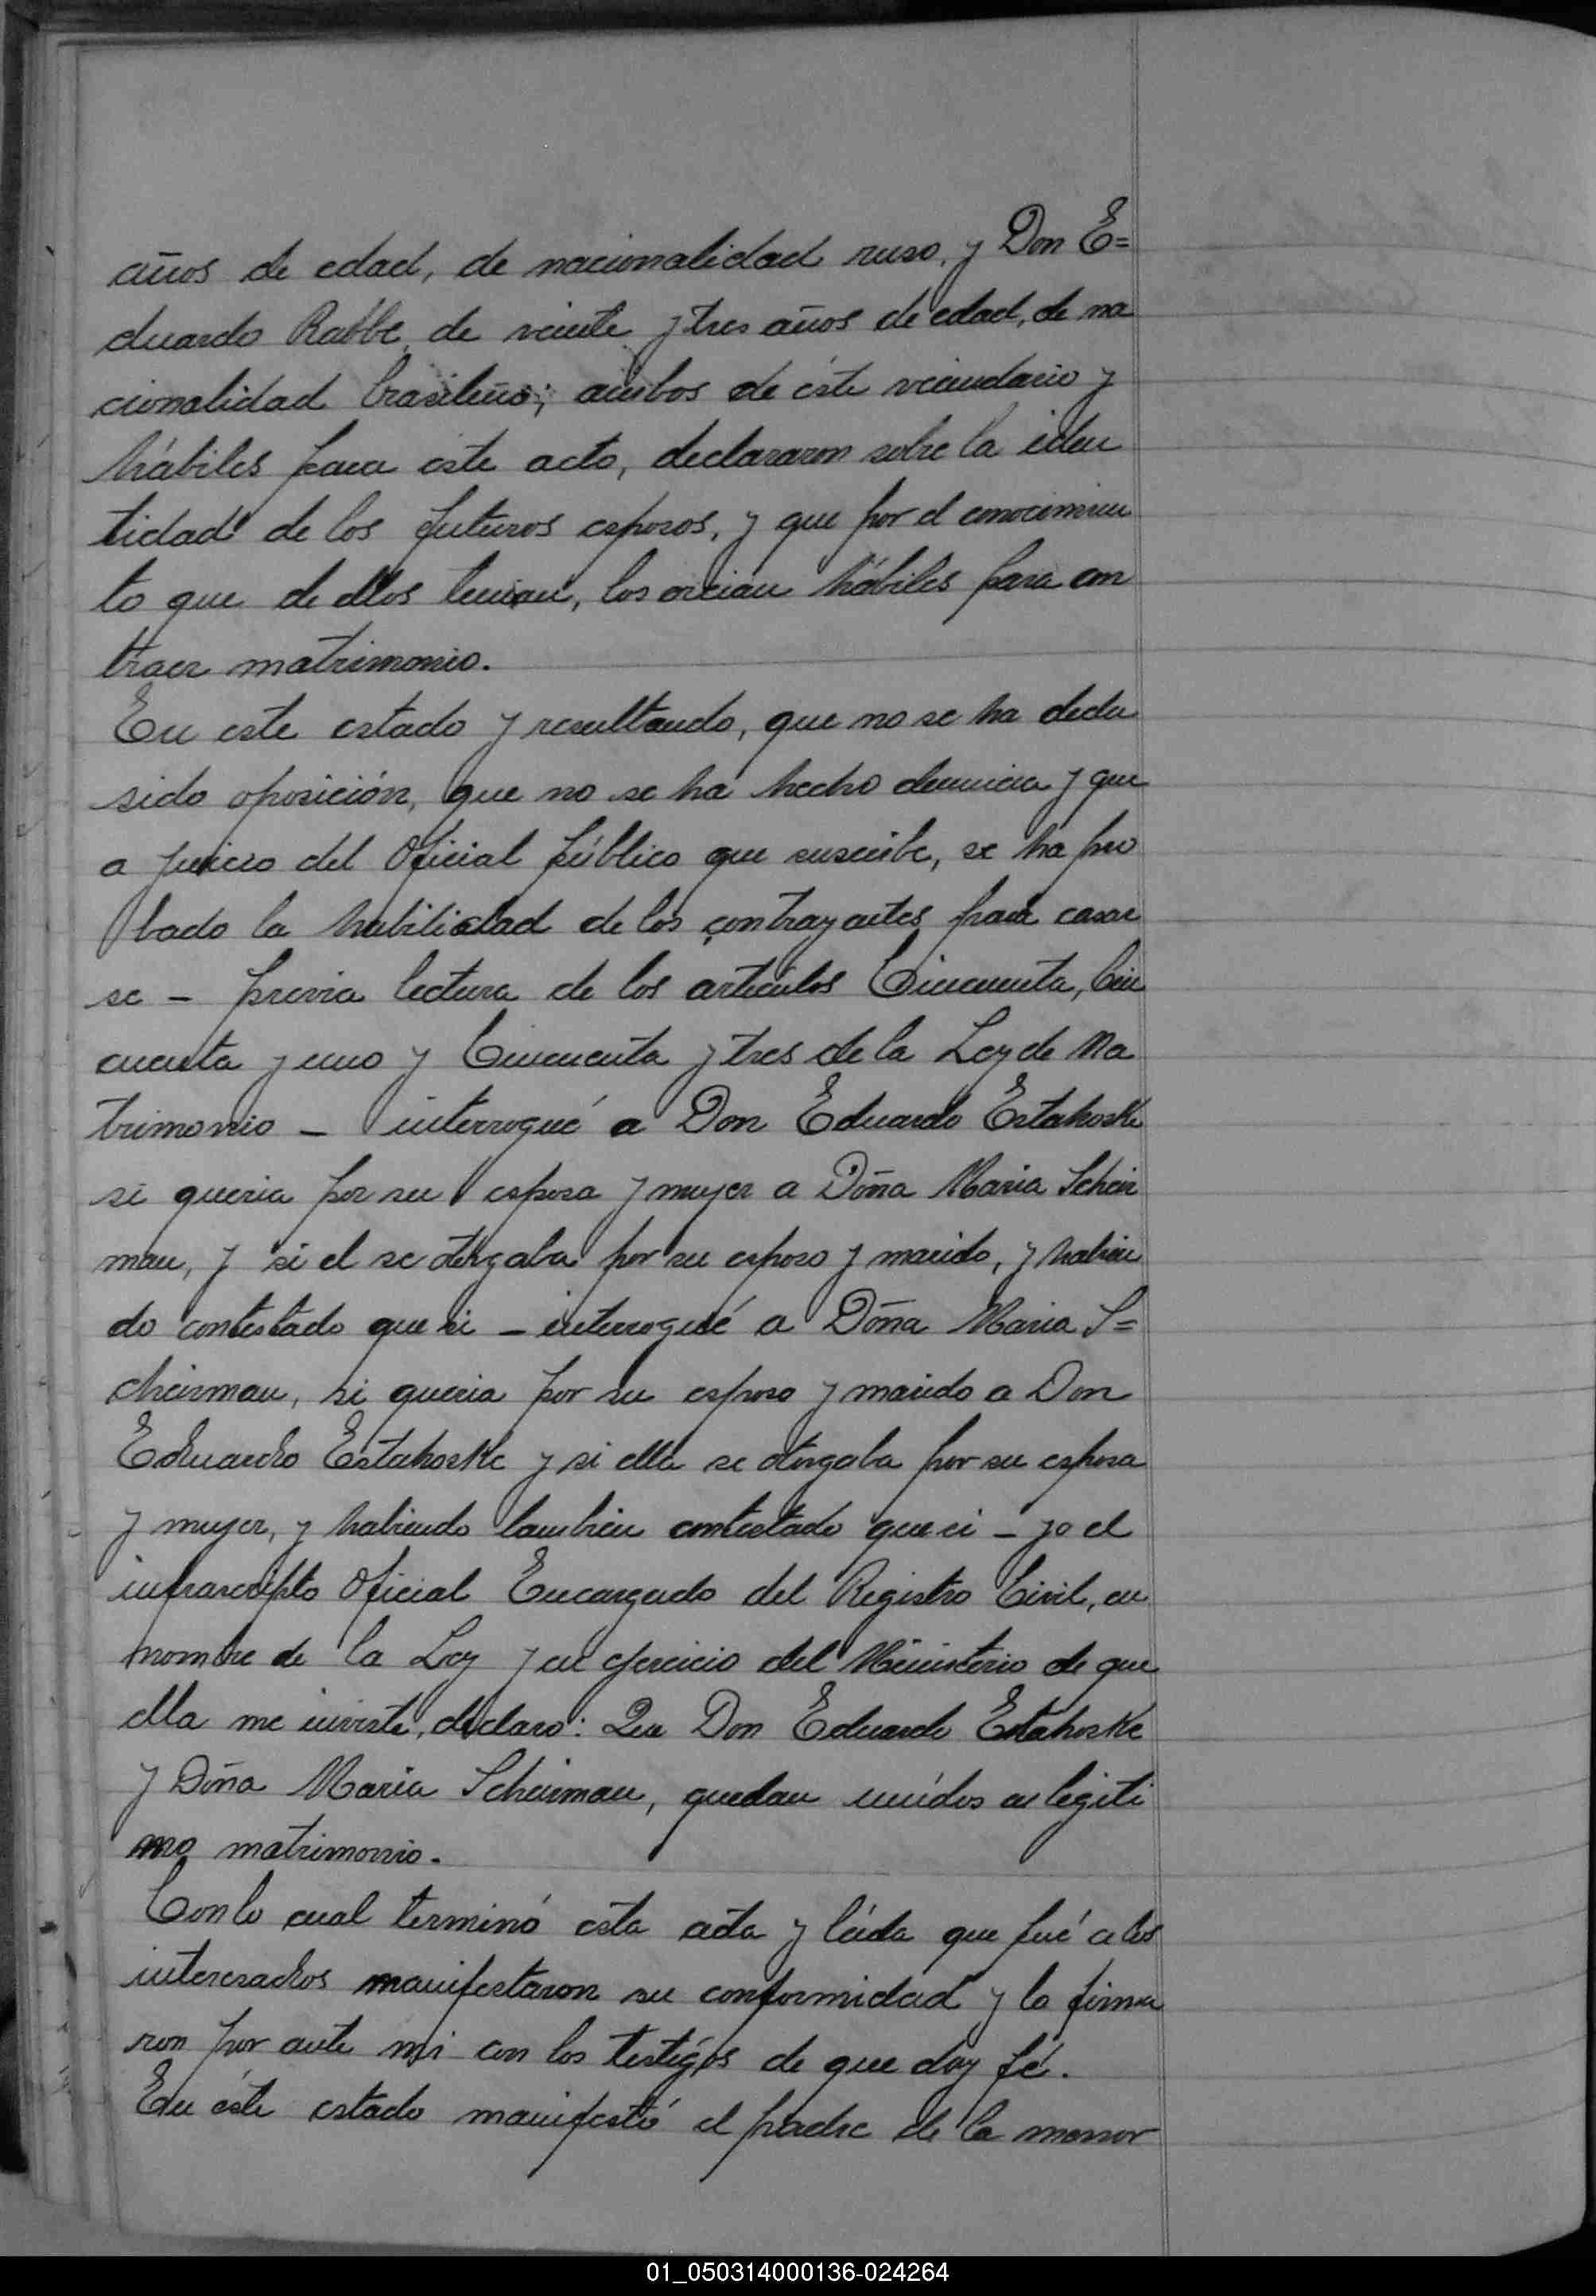 años de edad, de nacionalidad ruso, y Don E=
duardo Rabbe, de veinte y tres años de edad, de na
cionalidad brasileño; ambos de éste vecindario y
hábiles para este acto, declararon sobre la iden
tidad de los futuros esposos, y que por el conocimien
to que de ellos tenian, los creian hábiles para con
traer matrimonio.
En este estado y resultando, que no se ha dedu
sido oposición, que no se ha hecho denuncia y que
a juicio del Oficial público que suscribe, se ha pro
bado la habilidad de los contrayantes para casar
se - previa lectura de los artículos Cincuenta, Cin
cuenta y uno y Cincuenta y tres de la Ley de Ma
trimonio - interrogué a Don Eduardo Estahoske
si queria por su esposa y mujer a Doña Maria Scheir
man, y si el se otorgaba por su esposo y marido, y habien
do contestado que si - interrogué a Doña Maria S=
cheirman, si queria por su esposo y marido a Don
Eduardo Estahoske y si ella se otorgaba por su esposa
y mujer, y habiendo tambien contestado que si - yo el
infrascripto Oficial Encargado del Registro Civil, en
nombre de la Ley y en ejercicio del Ministerio de que
ella me inviste, declaro: Que Don Eduardo Estahoske
y Doña Maria Scheirman, quedan unídos en legiti
mo matrimonio.
Con lo cual terminó esta acta y leída que fué a los
interesados manifestaron su conformidad y la firma
ron por ante mi con los testigos de que doy fé.
En éste estado manifestó el padre de la menor
01_050314000136-024264